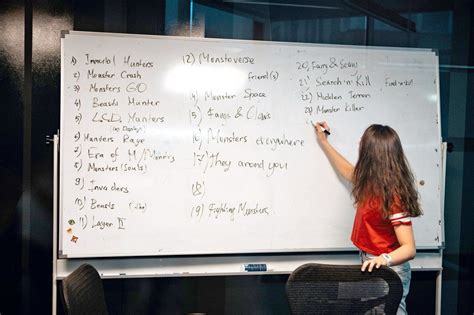 1) Immortal Hunters
2) Monster Crash
3) Monsters GO
4) Beasts Hunter
5) L.S.D. Hunters
6) Hunters Rage
7) Era of M/Monsters
8) Monsters (Souls)
9) Invaders
10) Beasts
11) Layer II
12) Monstoverse
13)
friend(s)
4) Monster Space
5) Fangs & Claws
16) Monsters everywhere
17) They around you
18)
19) Fighting Monsters
20) Fang &
21) Search 'n' Kill
Find 'n'
22) Hidden Terror
23) Monster Killer